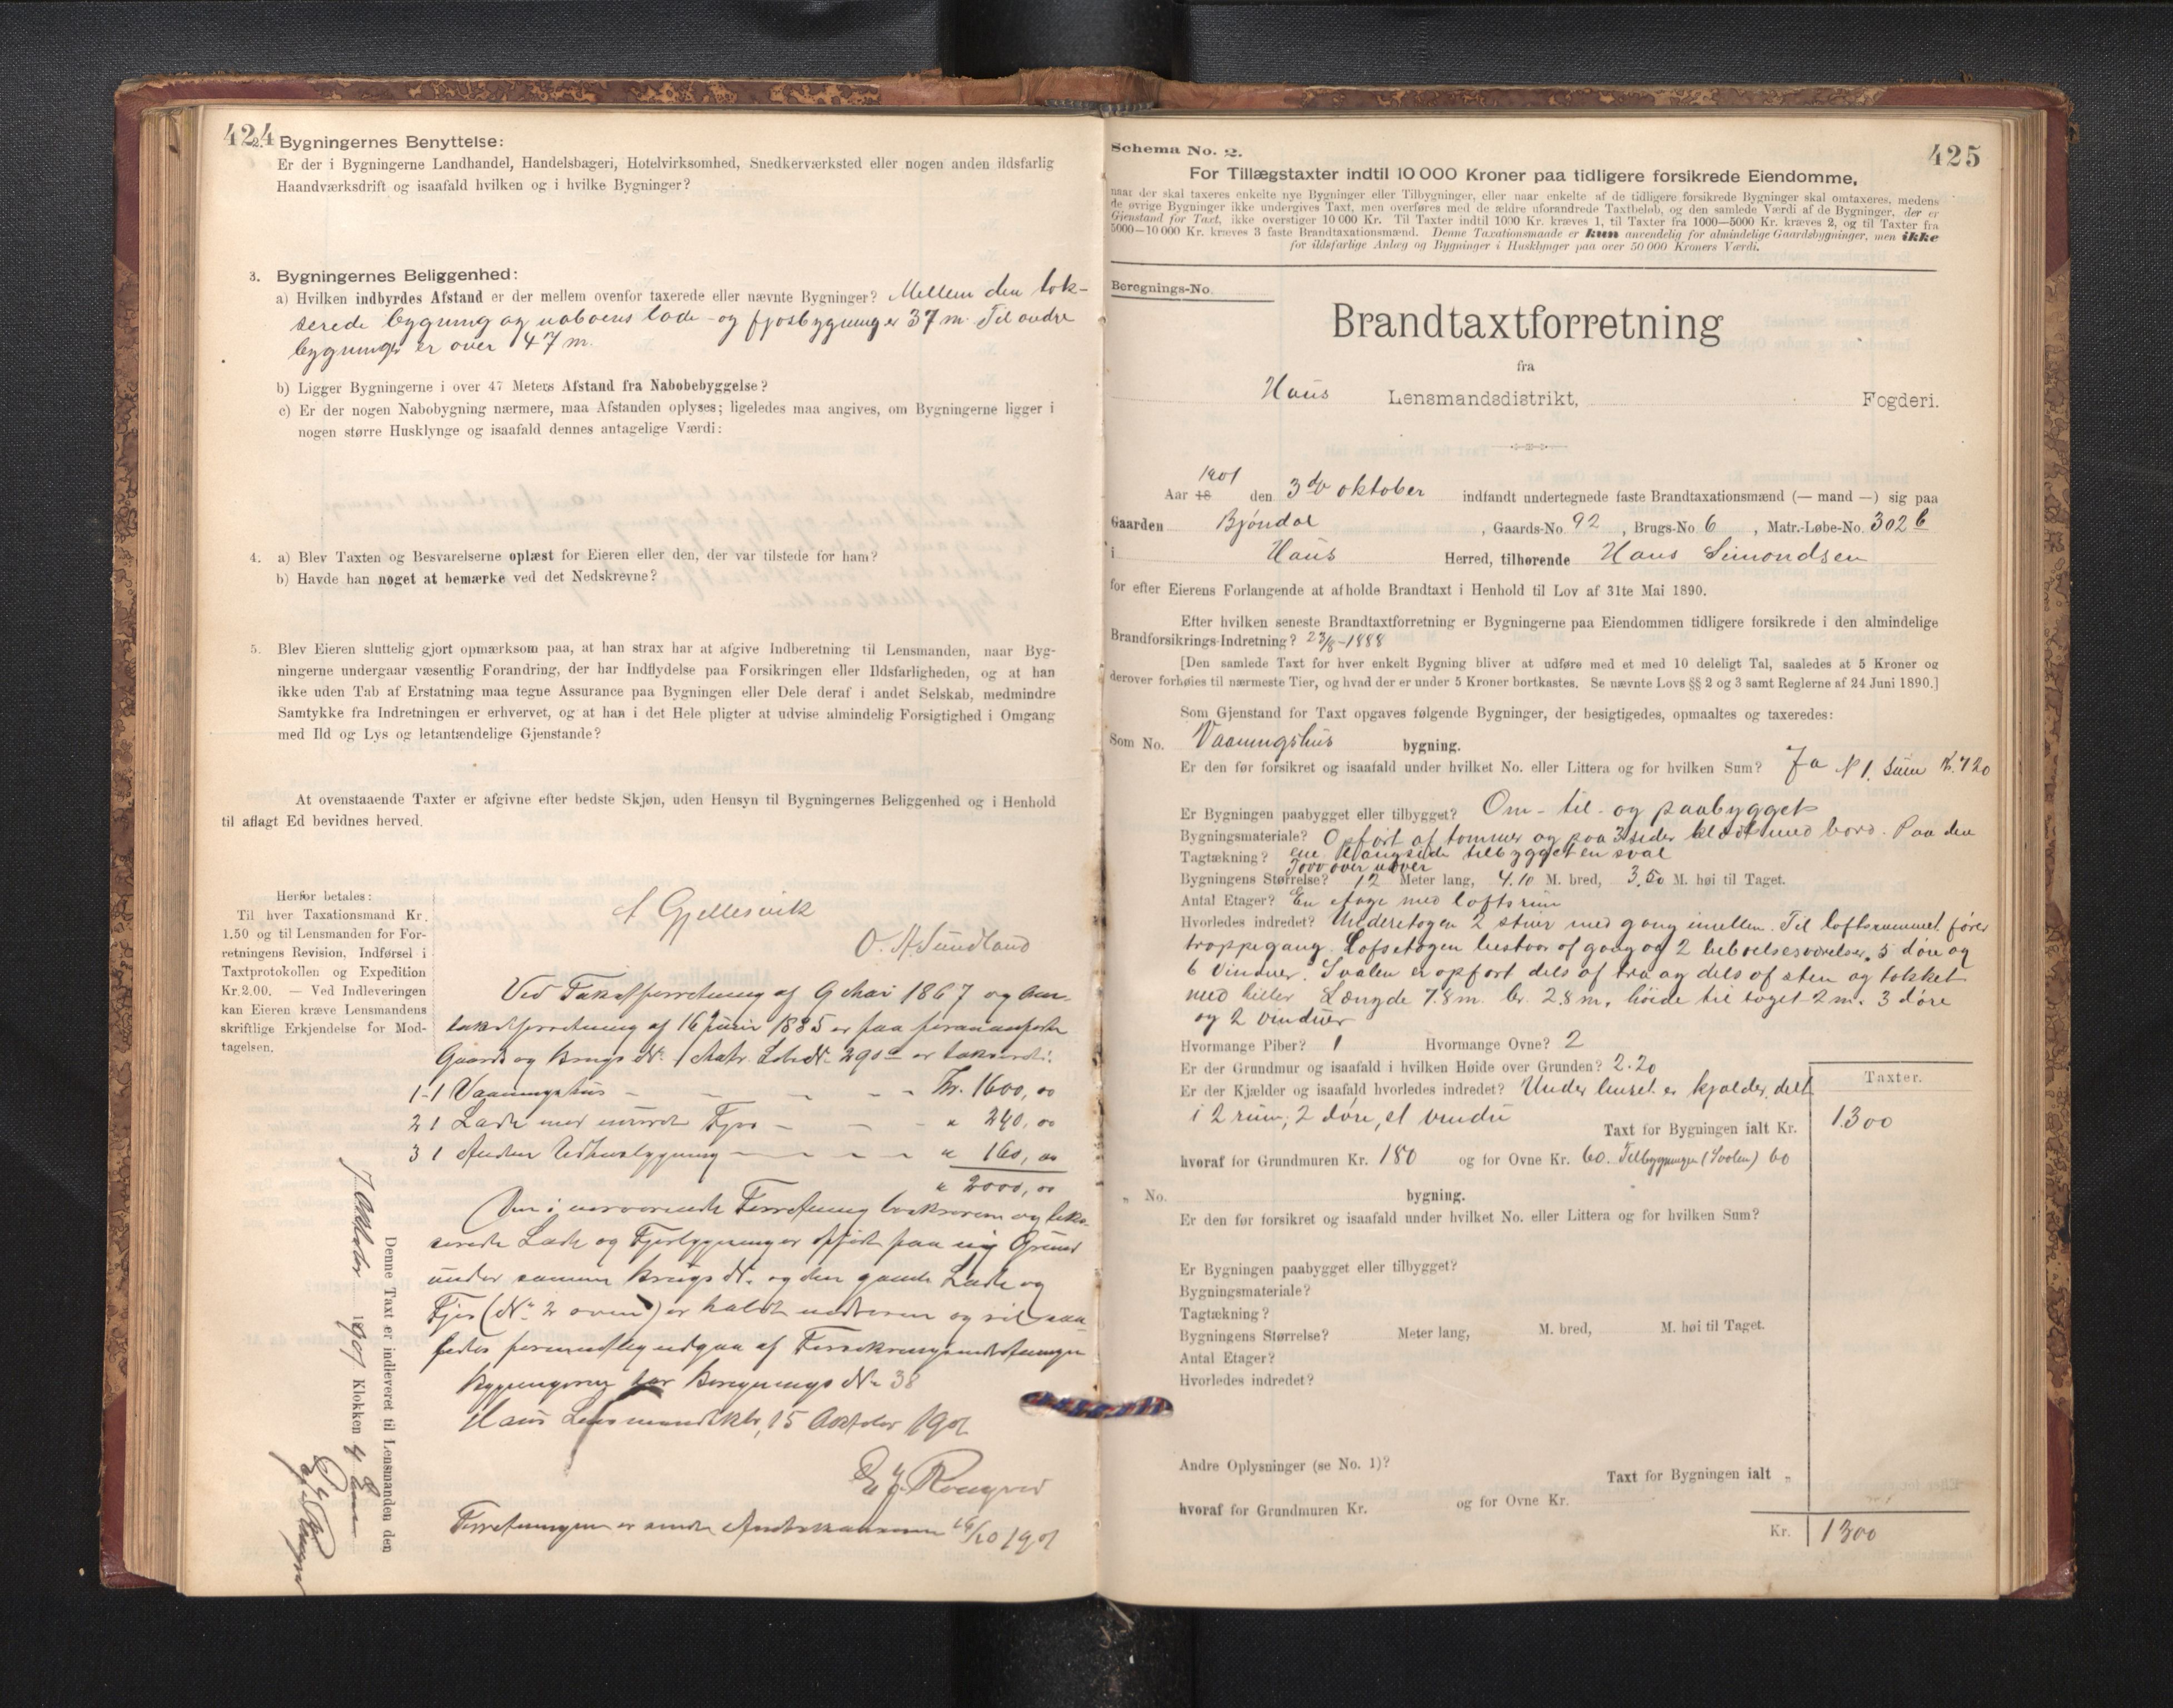 424
2. Bygningernes Benyttelse:
Er der i Bygningerne Landhandel, Handelsbageri, Hotelvirksomhed, Snedkerværksted eller nogen anden ildsfarlig
Haandværksdrift og isaafald hvilken og i hvilke Bygninger?
3. Bygningernes Beliggenhed:
a) Hvilken indbyrdes Afstand er der mellem ovenfor taxerede eller nævnte Bygninger? Mellem den tok-
serede bygning og naboens lade- og fjøsbygning er 37 m. Til andre
bygninger er over 47 m.
b) Ligger Bygningerne i over 47 Meters Afstand fra Nabobebyggelse?
c) Er der nogen Nabobygning nærmere, maa Afstanden oplyses; ligeledes maa angives, om Bygningerne ligger i
nogen større Husklynge og isaafald dennes antagelige Værdi:
4. a) Blev Taxten og Besvarelserne oplæst for Eieren eller den, der var tilstede for ham?
b) Havde han noget at bemærke ved det Nedskrevne?
5. Blev Eieren sluttelig gjort opmærksom paa, at han strax har at afgive Indberetning til Lensmanden, naar Byg-
ningerne undergaar væsentlig Forandring, der har Indflydelse paa Forsikringen eller Ildsfarligheden, og at han
ikke uden Tab af Erstatning maa tegne Assurance paa Bygningen eller Dele deraf i andet Selskab, medmindre
Samtykke fra Indretningen er erhvervet, og at han i det Hele pligter at udvise almindelig Forsigtighed i Omgang
med Ild og Lys og letantændelige Gjenstande?
At ovenstaaende Taxter er afgivne efter bedste Skjøn, uden Hensyn til Bygningernes Beliggenhed og i Henhold
til aflagt Ed bevidnes herved.
Herfor betales:
Til hver Taxationsmand Kr.
1.50 og til Lensmanden for For-
retningens Revision, Indførsel i
Taxtprotokollen og Expedition
Kr. 2.00. — Ved Indleveringen
kan Eieren kræve Lensmandens
skriftlige Erkjendelse for Mod-
tagelsen.
A Gjellesvik
O. A Sundland
Ved Takstforretning af 9 Mai 1867 og Om-
takstforretning af 16 Juni 1885 er paa forananførte
Gaards og Brugs No. 1 Matr. Løbe No. 290 a er takseret:
1-1 Vaaningshus - - - - Kr. 1600,00
2 1 Lade med Fjøs - - - " 240,00
3 1 Anden Udhusbygning - - - " 160,00
" 2000,00
Den i nærværende Forretning beskrevne og tak-
serede Lade og Fjøsbygning er opført paa ny Grund
under samme Brugs No. og den gamle Lade og
Fjøs (No. 2 oven) er nedreven og vil saa-
ledes udgaa af Forsikringsindretningen
Bygningerne har Beregnings No 38
Haus Lensmandsktr, 15 Oktober 1901
Forretningen er sendt Amtskassereren 16/10 1901
Denne Taxt er indleveret til Lensmanden den
7 Oktober 1901 Klokken 4
425
Schema No. 2.
For Tillægstaxter indtil 10 000 Kroner paa tidligere forsikrede Eiendomme,
naar der skal taxeres enkelte nye Bygninger eller Tilbygninger, eller naar enkelte af de tidligere forsikrede Bygninger skal omtaxeres, medens
de øvrige Bygninger ikke undergives Taxt, men overføres med de ældre uforandrede Taxtbeløb, og den samlede Værdi af de Bygninger, der er
Gjenstand for Taxt, ikke overstiger 10 000 Kr. Til Taxter indtil 1000 Kr. kræves 1, til Taxter fra 1000—5000 Kr. kræves 2, og til Taxter fra
5000—10 000 Kr. kræves 3 faste Brandtaxationsmænd. Denne Taxationsmaade er kun anvendelig for almindelige Gaardsbygninger, men ikke
for ildsfarlige Anlæg og Bygninger i Husklynger paa over 50 000 Kroners Værdi.
Beregnings-No.
Brandtaxtforretning
fra
Haus Lensmandsdistrikt, Fogderi.
Aar 18 1901 den 3die oktober indfandt undertegnede faste Brandtaxationsmænd (— mand —) sig paa
Gaarden Bjøndal, Gaards-No. 92, Brugs-No. 6, Matr.-Løbe-No. 302 b
i Haus Herred, tilhørende Hans Simondsen
for efter Eierens Forlangende at afholde Brandtaxt i Henhold til Lov af 31te Mai 1890.
Efter hvilken seneste Brandtaxtforretning er Bygningerne paa Eiendommen tidligere forsikrede i den almindelige
Brandforsikrings-Indretning? 23/8-1888
[Den samlede Taxt for hver enkelt Bygning bliver at udføre med et med 10 deleligt Tal, saaledes at 5 Kroner og
derover forhøies til nærmeste Tier, og hvad der er under 5 Kroner bortkastes. Se nævnte Lovs §§ 2 og 3 samt Reglerne af 24 Juni 1890.]
Som Gjenstand for Taxt opgaves følgende Bygninger, der besigtigedes, opmaaltes og taxeredes:
Som No. Vaaningshus bygning.
Er den før forsikret og isaafald under hvilket No. eller Littera og for hvilken Sum? Ja № 1. Sum K. 720
Er Bygningen paabygget eller tilbygget? Om- til- og paabygget
Bygningsmateriale? Opført af tømmer og paa 3 sider klædt med bord. Paa den
Tagtækning? ene langside tilbygget en sval
Bygningens Størrelse? 12 Meter lang, 4.10 M. bred, 3.50 M. høi til Taget.
Antal Etager? En etage med loftsrum
Hvorledes indredet? Underetagen 2 stuer med gang imellem. Til loftsrummet fører
trappegang. Loftsetagen bestaar af gang og 2 beboelsesværelser, 5 døre og
6 vinduer. Svalen er opført dels af træ og dels af sten og tækket
med heller Længde 7.8 m. br. 2.8 m, høide til taget 2 m. 3 døre
og 2 vinduer
Hvormange Piber? 1 Hvormange Ovne? 2
Er der Grundmur og isaafald i hvilken Høide over Grunden? 2.20
Er der Kjælder og isaafald hvorledes indredet? Under huset er kjælder, delt
i 2 rum, 2 døre, et vindu
Taxter.
Taxt for Bygningen ialt Kr. 1300
hvoraf for Grundmuren Kr. 180 og for Ovne Kr. 60. Tilbygningen (Svalen) 60
„ No. bygning.
Er den før forsikret og isaafald under hvilket No. eller Littera og for hvilken Sum?
Er Bygningen paabygget eller tilbygget?
Bygningsmateriale?
Tagtækning?
Bygningens Størrelse? Meter lang, M. bred, M. høi til Taget.
Antal Etager?
Hvorledes indredet?
Andre Oplysninger (se No. 1)?
Taxt for Bygningen ialt „
hvoraf for Grundmuren Kr. og for Ovne Kr.
Kr. 1300